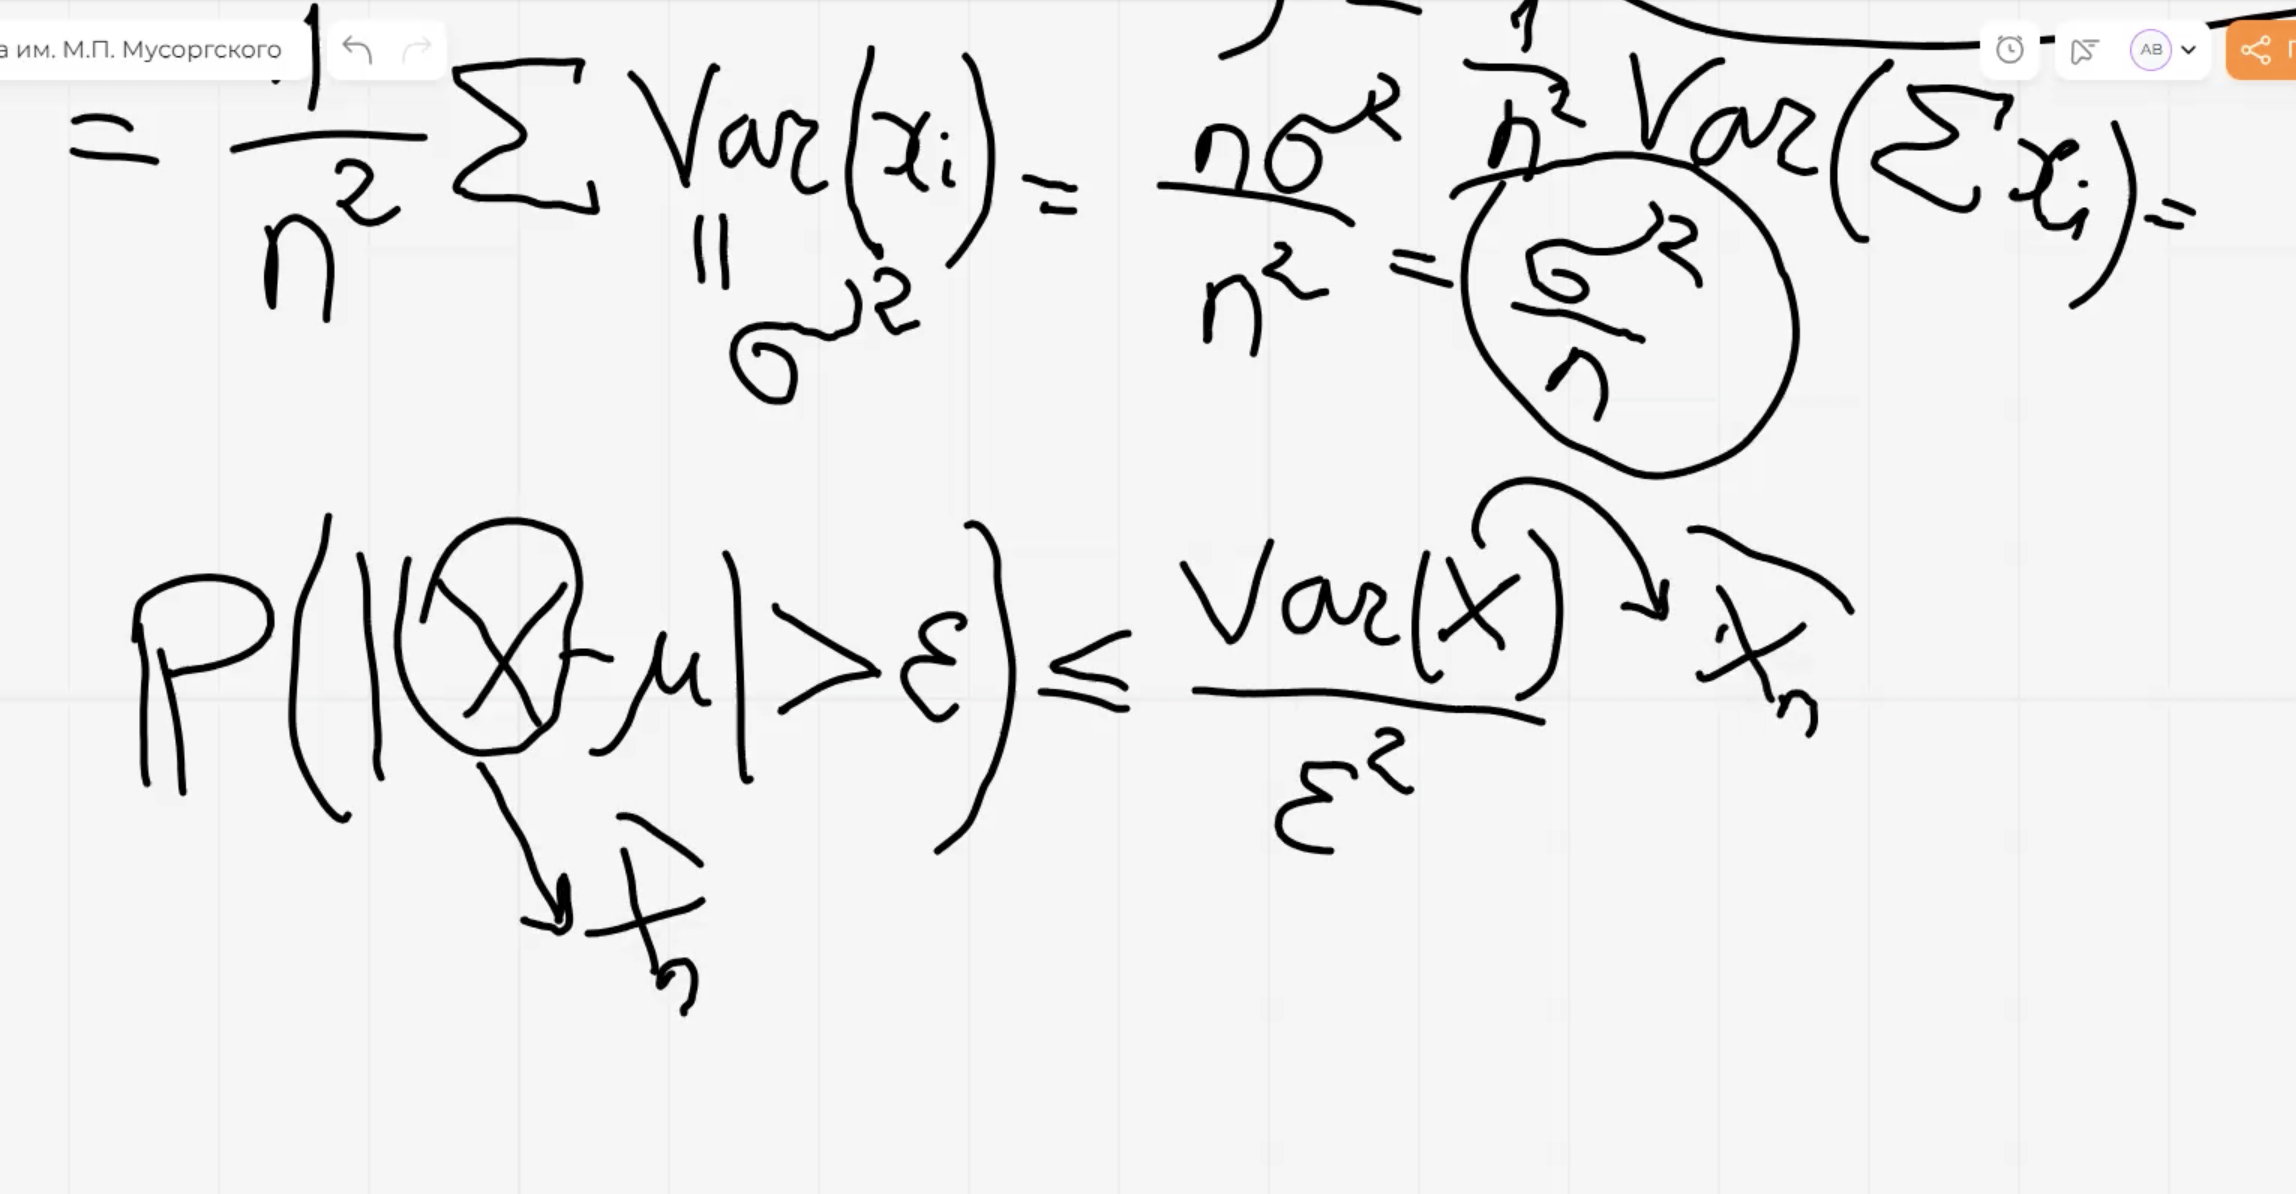 а им. М.П. Мусоргского
AB
1/n² Var(Σxᵢ) =
= 1/n² Σ Var(xᵢ) = nσ²/n² = σ²/n
|| σ²
P(|X - μ| > ε) ≤ Var(X)/ε² → X̄ₙ
X̄ₙ